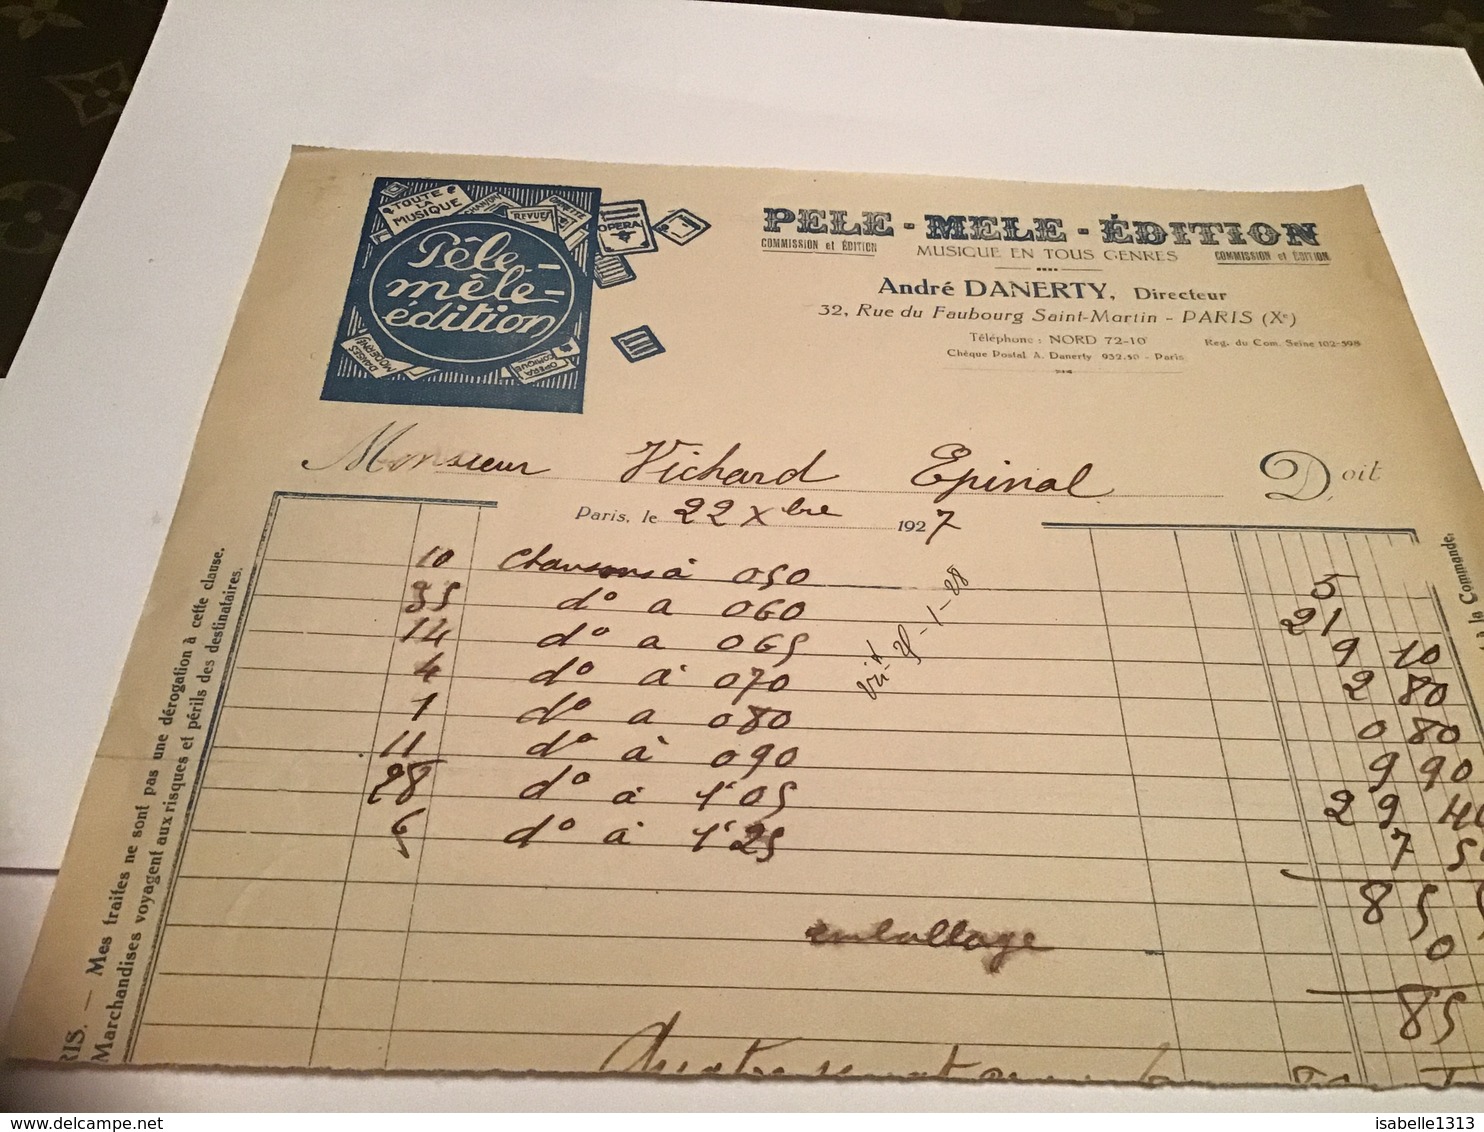 TOUTE LA MUSIQUE
CHANSON
REVUES
OPERA
Pêle-
mêle-
édition
DANSES MODERNE
OPERA COMIQUE
PELE - MELE - ÉDITION
COMMISSION et ÉDITION
MUSIQUE EN TOUS GENRES
COMMISSION et ÉDITION
André DANERTY, Directeur
32, Rue du Faubourg Saint-Martin - PARIS (Xe)
Téléphone : NORD 72-10
Reg. du Com. Seine 102-598
Chèque Postal A. Danerty 932.50 - Paris
Monsieur Vichard Epinal Doit
Paris, le 22 Xbre 1927
10 Chansons à 050 5
35 do a 060 21
14 do a 065 9 10
4 do à 070 2 80
1 do a 080 0 80
11 do à 090 9 90
28 do à 1'05 29 40
6 do à 1'25 7 5
85 5
emballage 0
85
28-1-28
Mes traites ne sont pas une dérogation à cette clause.
Marchandises voyagent aux risques et périls des destinataires.
RIS. —
à la Commande.
Quatre vingt
isabelle1313